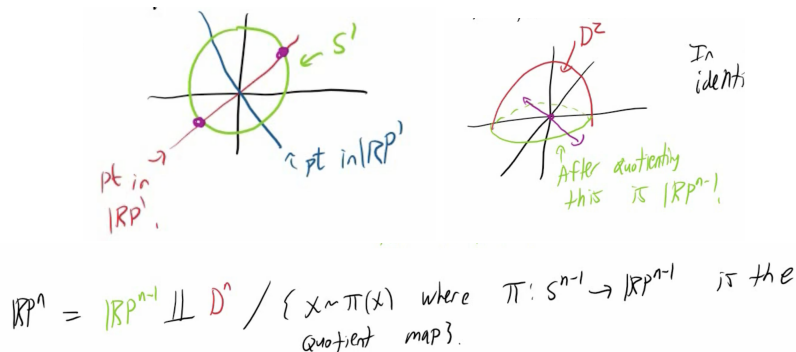 S¹
pt in
ℝP¹.
pt in ℝP¹
D²
In
identi
After quotienting
this is ℝPⁿ⁻¹!
ℝPⁿ = ℝPⁿ⁻¹ ⨿ Dⁿ / { x ~ π(x) where π: Sⁿ⁻¹ → ℝPⁿ⁻¹ is the
quotient map}.